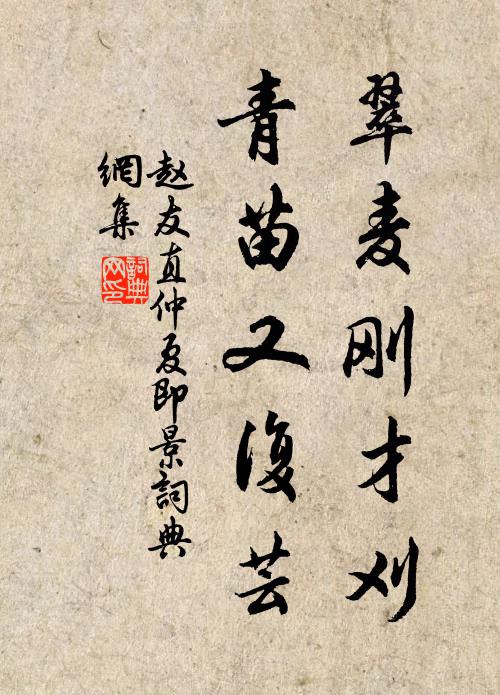 翠麦刚才刈
青苗又復芸
赵友直仲夏即景詞典
網集
詞典网印